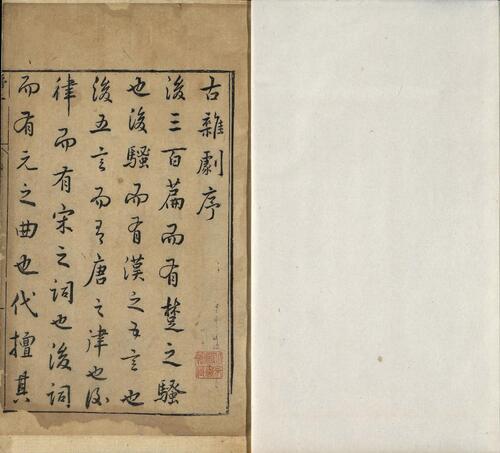 古雜劇序
後三百篇而有楚之騷
也後騷而有漢之五言也
後五言而有唐之律也後
律而有宋之詞也後詞
而有元之曲也代擅其